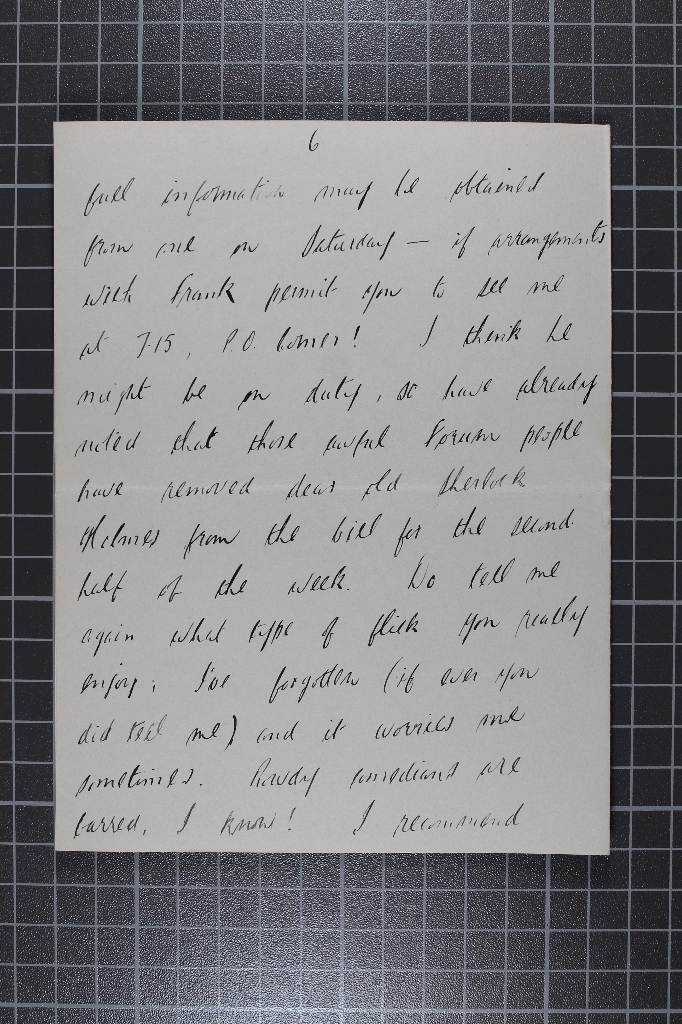 6
full information may be obtained
from me on Saturday — if arrangements
with Frank permit you to see me
at 7.15, P.O. Corner! I think he
might be on duty, so have already
noted that those awful Forum people
have removed dear old Sherlock
Holmes from the bill for the second
half of the week. Do tell me
again what type of flick you really
enjoy; I've forgotten (if ever you
did tell me) and it worries me
sometimes. Rowdy comedians are
barred, I know! I recommend